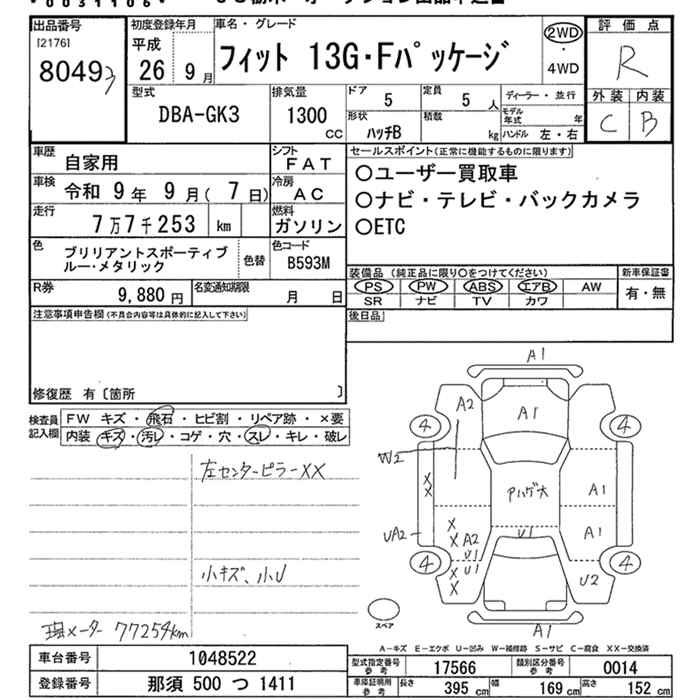 0031106
出品番号
[2176]
80493
初度登録年月
平成
26 9月
車名・グレード
フィット 13G・Fパッケージ
2WD
・
4WD
評価点
R
外装 内装
C B
型式
DBA-GK3
排気量
1300
CC
ドア
5
定員
5 人
ディーラー・並行
形状
ハッチB
積載
kg
モデル年式 年
ハンドル 左・右
車歴
自家用
シフト
FAT
車検
令和 9年 9月(7日)
冷房
AC
走行
7万7千253 km
燃料
ガソリン
色
ブリリアントスポーティブ
ルー・メタリック
色替
色コード
B593M
R券
9,880円
名変通知期限
月 日
セールスポイント(正常に機能するものに限ります)
〇ユーザー買取車
〇ナビ・テレビ・バックカメラ
〇ETC
装備品(純正品に限り〇をつけてください)
PS PW ABS エアB AW
SR ナビ TV カワ
新車保証書
有・無
注意事項申告欄(不具合内容等は具体的に記入して下さい)
後日品
修復歴 有〔箇所 〕
検査員
記入欄
FW キズ・飛石・ヒビ割・リペア跡・×要
内装 キズ・汚レ・コゲ・穴・スレ・キレ・破レ
左センターピラーXX
小キズ、小U
現メーター 77254km
A1
A2
A1
4
4
W2
X
X
Pハゲ大
A1
UA2
X
X
A2
U1
U1
A1
4
X
X
U1
U2
4
A1
スペア
A-キズ E-エクボ U-凹ミ W-補修跡 S-サビ C-腐食 XX-交換済
車台番号
1048522
登録番号
那須 500 つ 1411
型式指定番号
参考
17566
類別区分番号
参考
0014
車庫証明用
参考
長さ 395 cm 幅 169 cm 高さ 152 cm